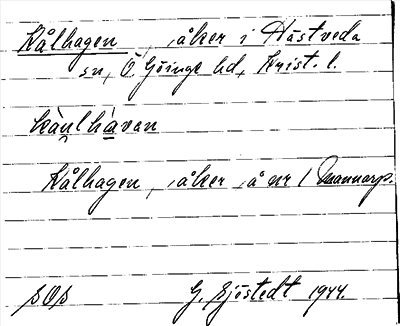 Kålhagen, åker i Hästveda
sn, Ö. Göinge hd, Krist. l.
kàu̯lhàvan
Kålhagen, åker å nr 1 Mannarp.
SOS G. Sjöstedt 1944.